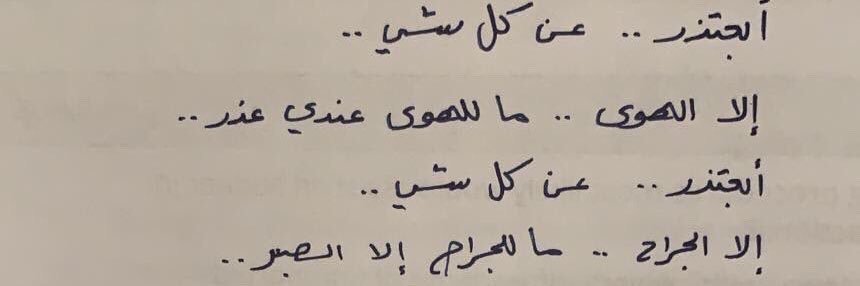 أعتذر .. عن كل شي ..
إلا الهوى .. ما للهوى عندي عذر ..
أعتذر .. عن كل شي ..
إلا الجراح .. ما للجراح إلا الصبر ..